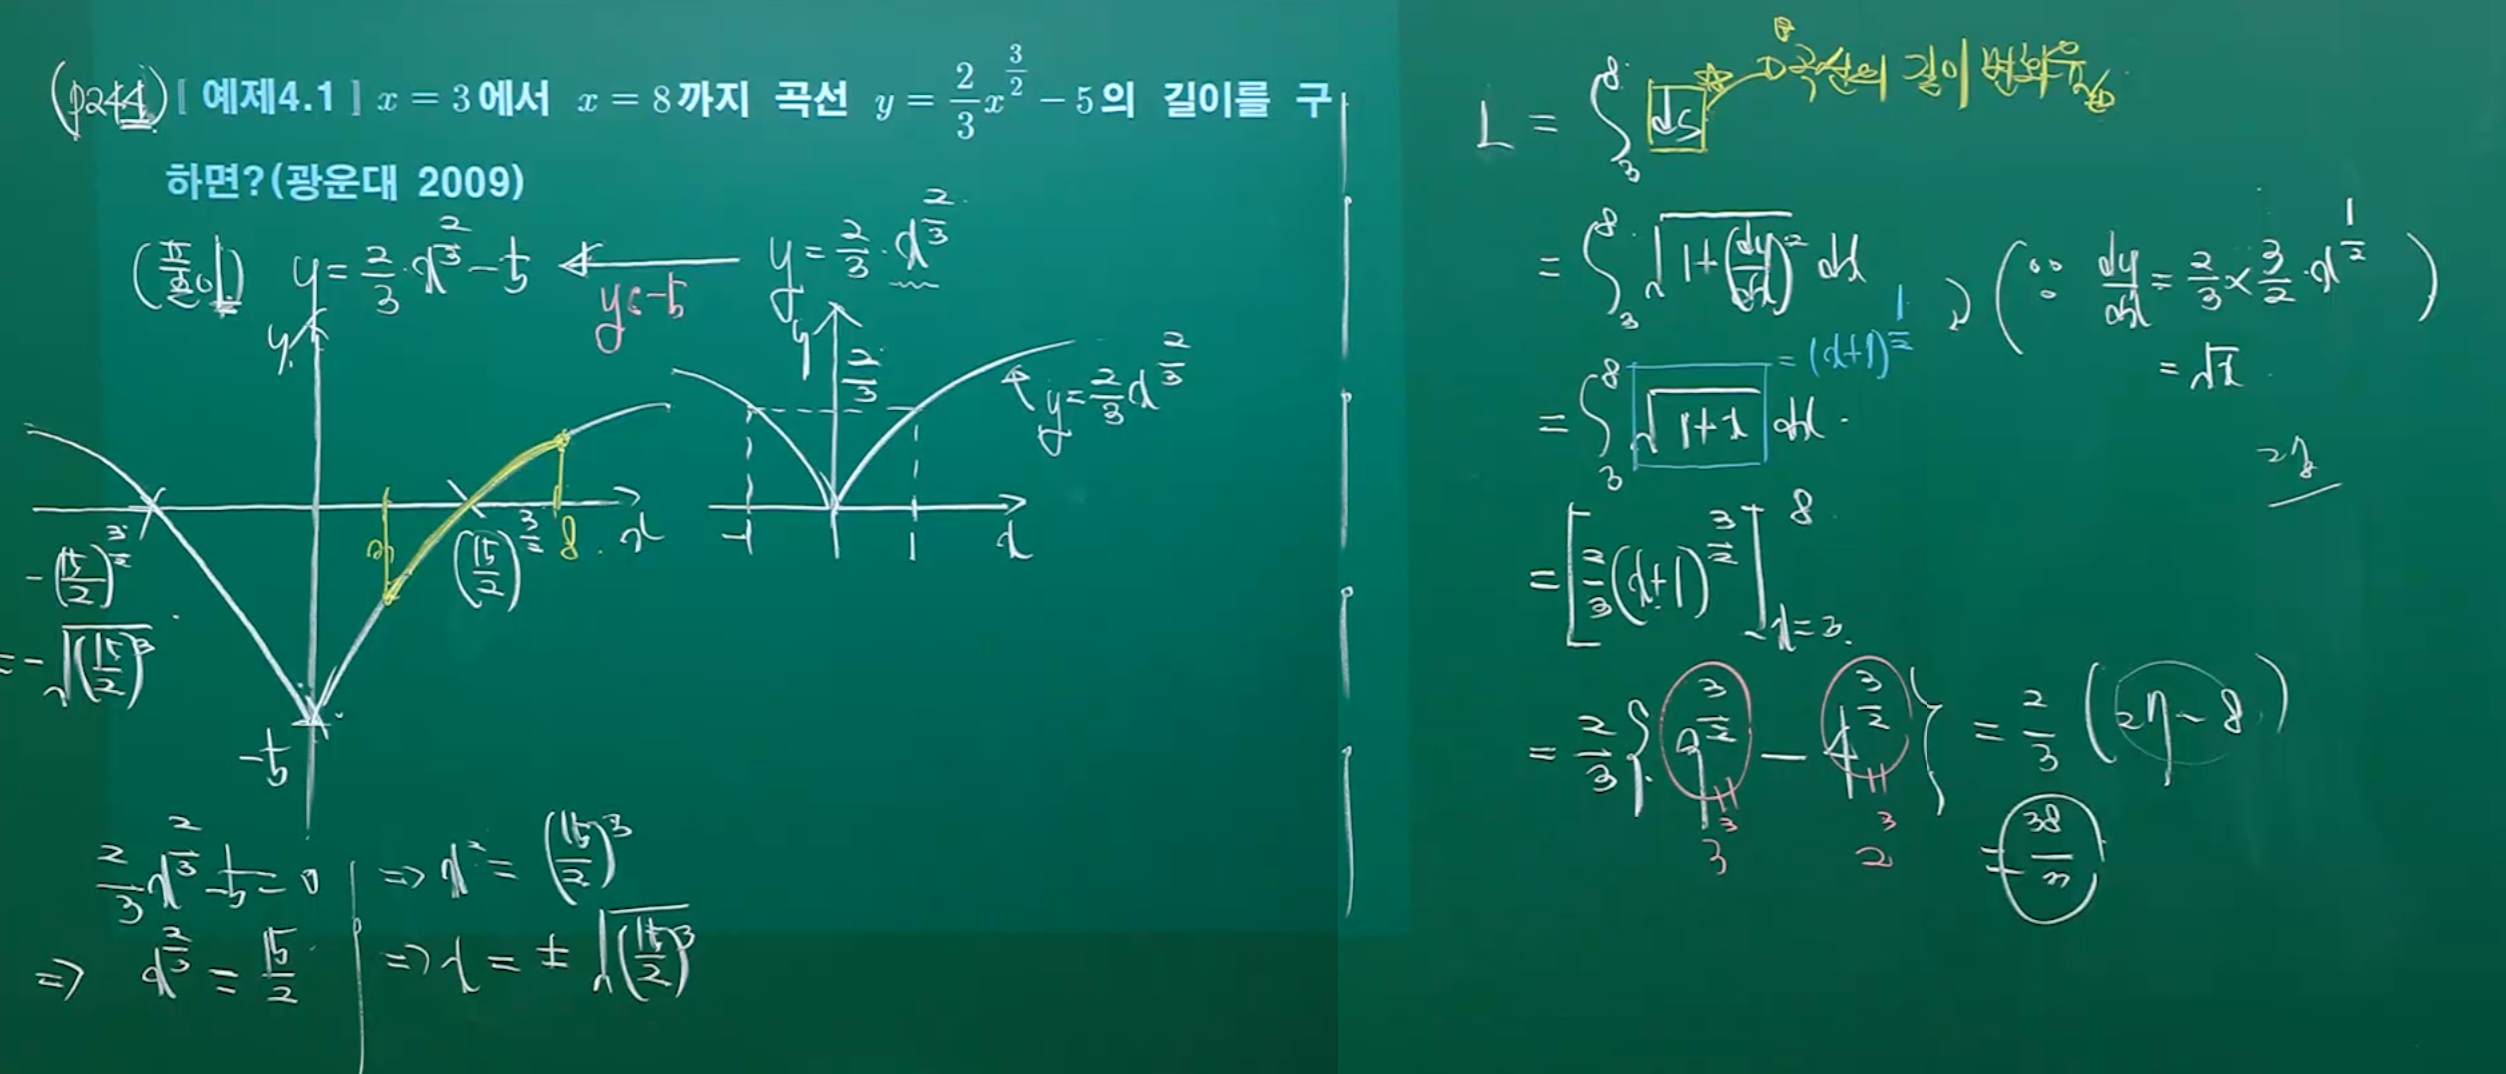 (p244) [ 예제4.1 ] x = 3에서 x = 8까지 곡선 y = \frac{2}{3}x^{\frac{3}{2}} - 5의 길이를 구
하면?(광운대 2009)
(풀이) y = \frac{2}{3}·x^{\frac{2}{3}} - 5 ← y: -5 y = \frac{2}{3}·x^{\frac{2}{3}}
y
3 (\frac{15}{2})^{\frac{3}{2}} 8 x
-(\frac{15}{2})^{\frac{3}{2}}
= -\sqrt{(\frac{15}{2})^3}
-5
y \frac{2}{3} y = \frac{2}{3}x^{\frac{2}{3}}
-1 1 x
\frac{2}{3}x^{\frac{2}{3}} - 5 = 0
⇒ x^{\frac{2}{3}} = \frac{15}{2}
⇒ x^2 = (\frac{15}{2})^3
⇒ x = ±\sqrt{(\frac{15}{2})^3}
L = ∫_3^8 ds → 곡선의 길이 변화
= ∫_3^8 \sqrt{1+(\frac{dy}{dx})^2} dx , (∵ \frac{dy}{dx} = \frac{2}{3}×\frac{3}{2}·x^{\frac{1}{2}}
= \sqrt{x} )
= ∫_3^8 \sqrt{1+x} dx = (x+1)^{\frac{1}{2}}
= [\frac{2}{3}(x+1)^{\frac{3}{2}}]_{x=3}^8
= \frac{2}{3}{9^{\frac{3}{2}} - 4^{\frac{3}{2}}} = \frac{2}{3}(27-8)
3^3 2^3
= \frac{38}{3}